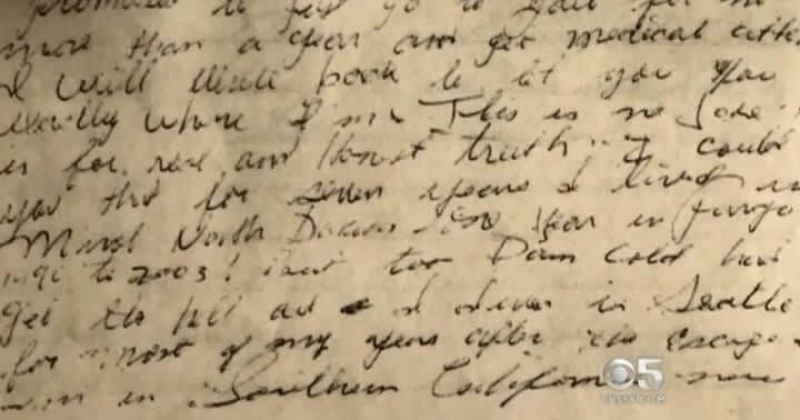 promised to jail for no
more than a year and get medical atten
I will write back to let you you
exactly where I am This is no Joke
is for real and Honest truth. I could
you that for seven years I lived in
Minot North Dakota year in fargo
to 2003! but too Damn Cold here
get the hell out I in Seattle
for most of my years after the escape
in Southern California now
5